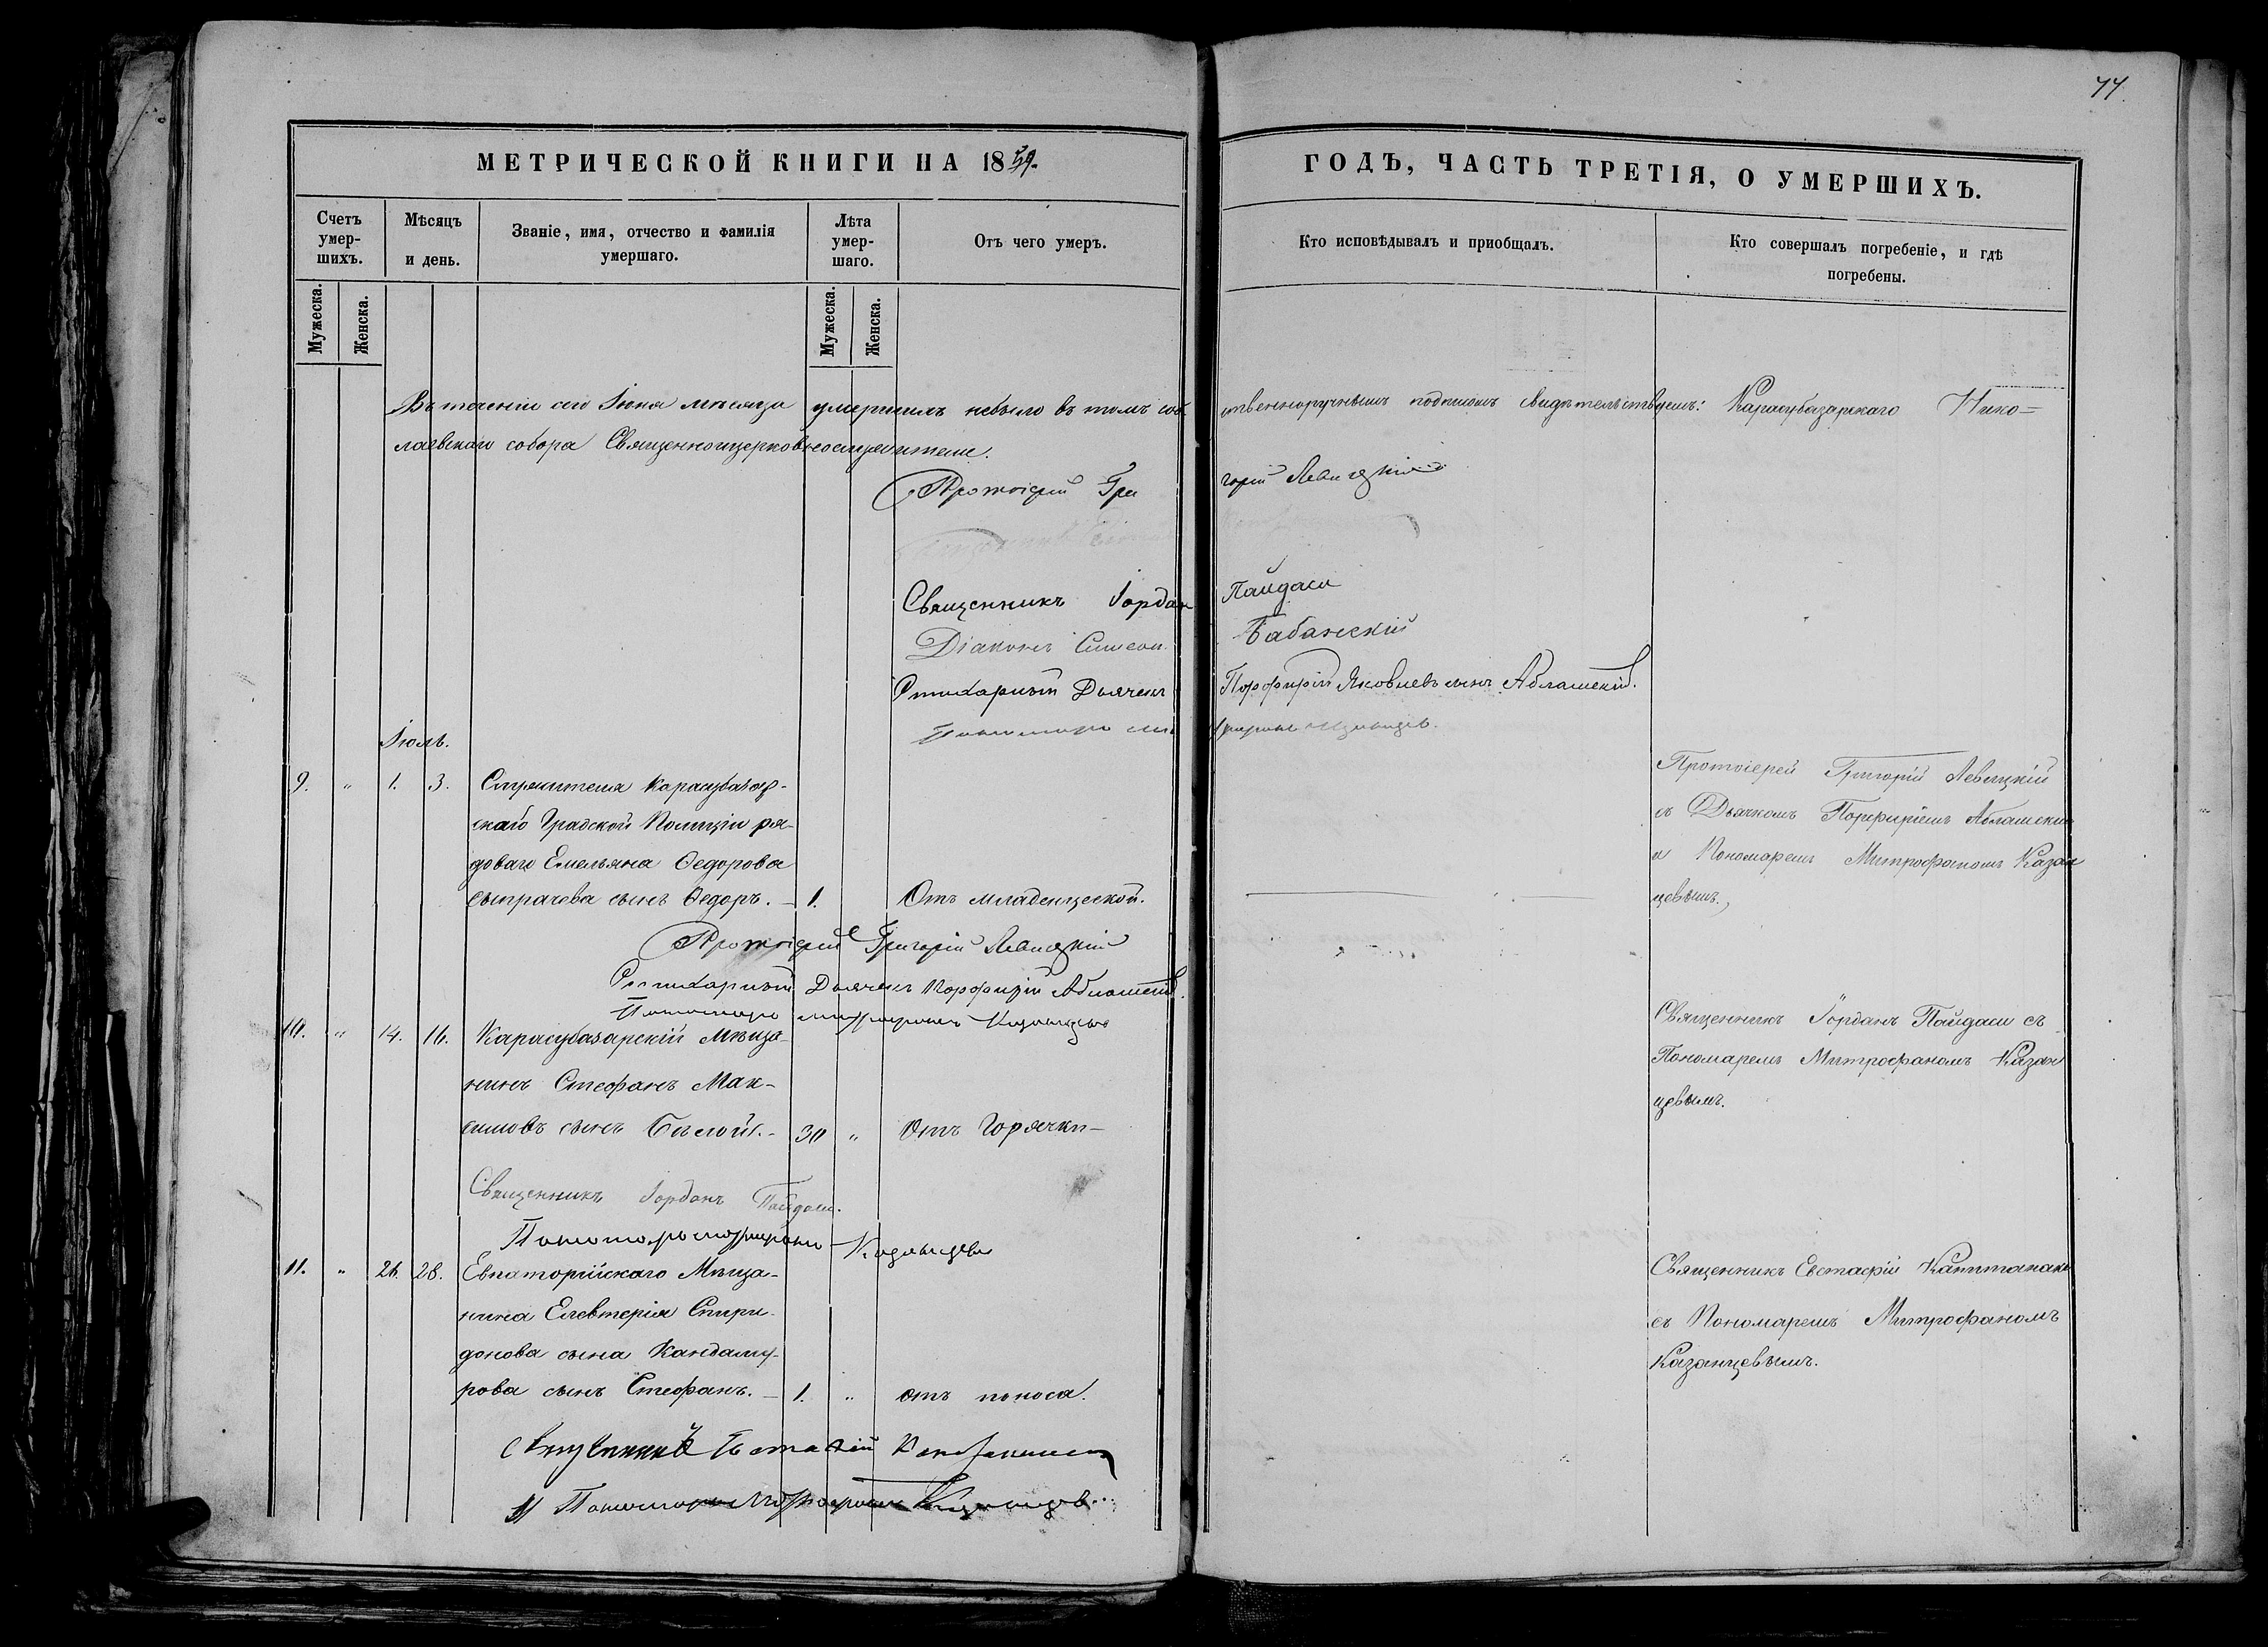 77.
МЕТРИЧЕСКОЙ КНИГИ НА 1859. ГОДЪ, ЧАСТЬ ТРЕТІЯ, О УМЕРШИХЪ.
Счетъ умер-шихъ.
Мѣсяцъ и день.
Званіе, имя, отчество и фамилія умершаго.
Лѣта умер-шаго.
Отъ чего умеръ.
Кто исповѣдывалъ и приобщалъ.
Кто совершалъ погребеніе, и гдѣ погребены.
Мужеска.
Женска.
Мужеска.
Женска.
Въ теченіи сего Іюня мѣсяца умершихъ небыло въ томъ соб ственноручнымъ подписомъ свидѣтельствуемъ: Карасубазарскаго Нико=
лаевскаго собора Священноицерковнослужители.
Протоіерей Гри горій Левицкій
Священникъ Іордан Пайдаси
Діаконъ Симеон Бабанскій
Стихарный Дьячекъ Порфирій Яковлевъ сынъ Аблашескій.
Пономарь Ми трофанъ Казанцевъ.
Іюль.
9. " 1. 3. Служителя Карасубазар-
скаго Градской Полиціи ря-
доваго Емельяна Ѳедорова
сынъ Ѳедоръ. — 1. Отъ младенческой.
Протоіерей Григорій Левицкій
съ Дьячкомъ Порфиріемъ
и Пономаремъ Митрофаномъ Казан
цевымъ.
Протоіерей Григорій Левицкій
Стихарный Дьячекъ Порфирій
Пономарь Митрофанъ Казанцевъ
10. " 14. 16. Карасубазарскій Мѣща-
нинъ Стефанъ Мак-
симовъ сынъ Бѣлой. - 30 " Отъ Горячки —
Священникъ Іорданъ Пайдаси съ
Пономаремъ Митрофаномъ Казан
цевымъ.
Священникъ Іорданъ Пайдаси.
Пономарь Митрофанъ Казанцевъ
11. " 26. 28. Евпаторійскаго Мѣща-
нина Елевтерія Спири-
донова сына Кандаму-
рова сынъ Стефанъ. — 1. " отъ поноса.
Священникъ Евстафій
съ Пономаремъ Митрофаномъ
Казанцевымъ.
Священникъ Евстафій
Пономарь Митрофанъ Казанцевъ.